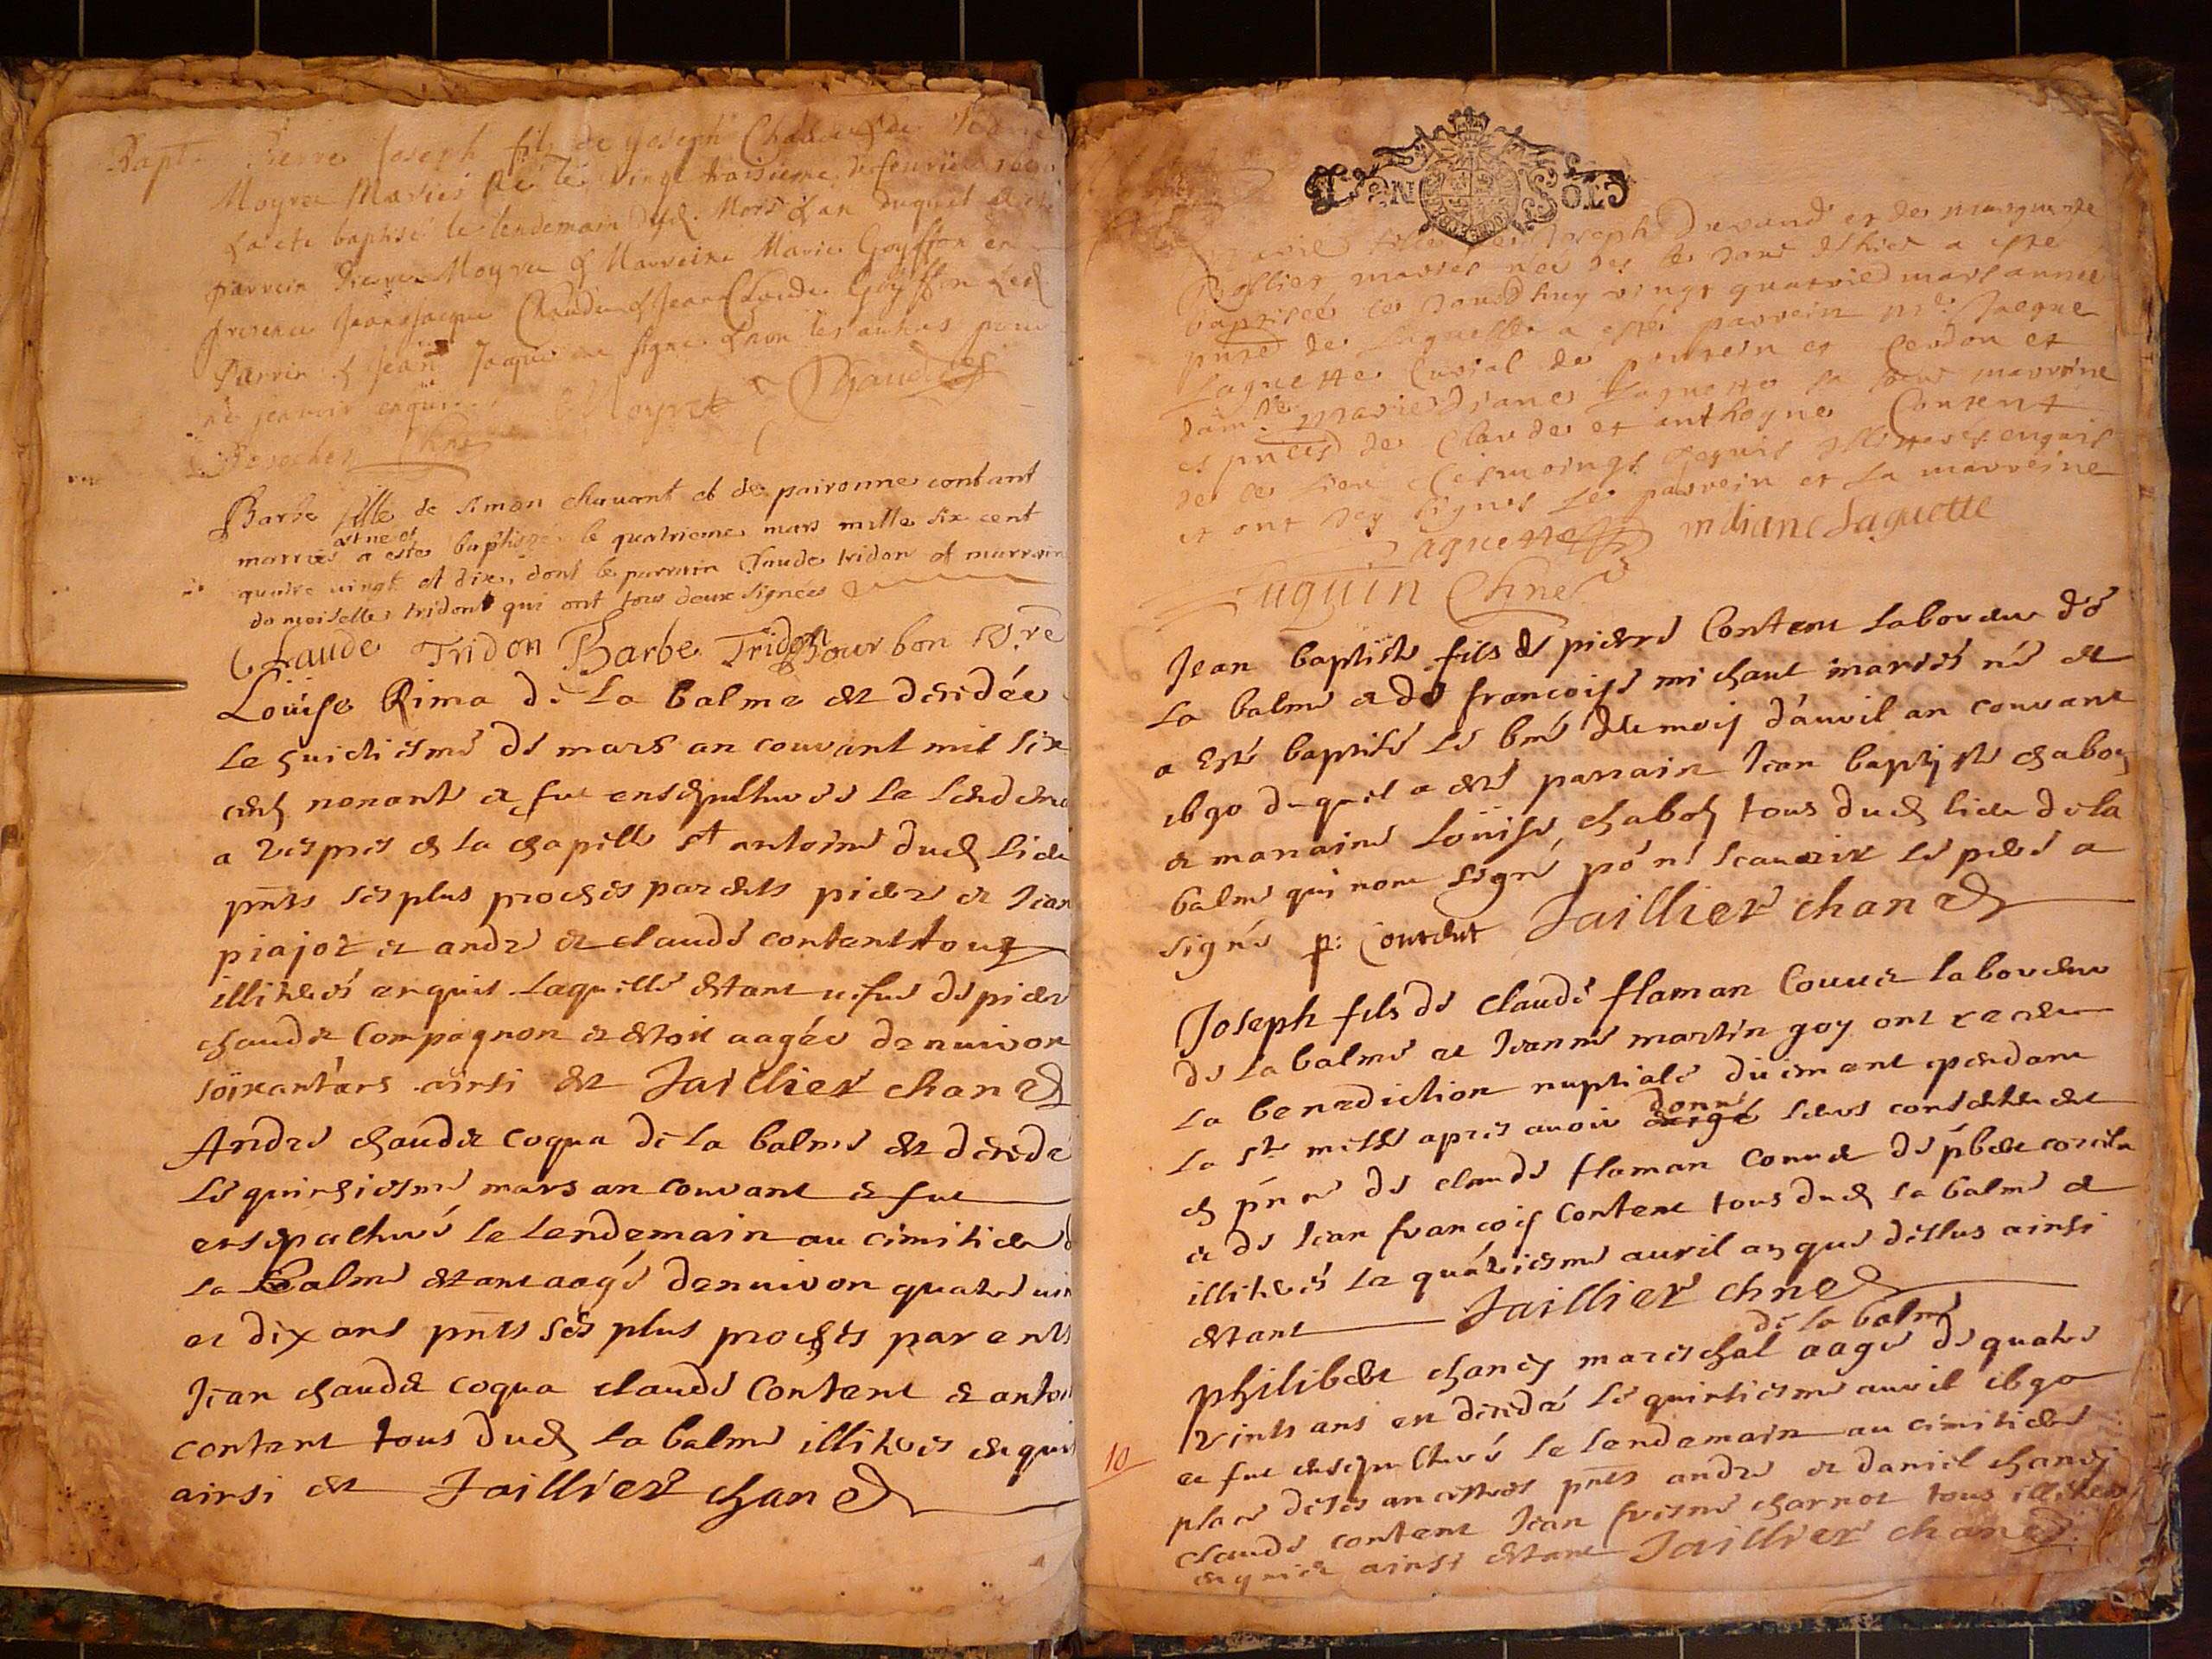 Bapt. Pierre Joseph fils de Joseph Chaudet & de
Moyret Mariés Né le vingt troisieme de feurier
La ete baptisé le lendemain Mars Lan duquel a ete
parrein Pierre Moyret & Marreine Marie Goyffon en
presence Jean Jacque Chaudet & Jean Claude Goyffon Led
Parrin & Jean Jaque ont signé & non les autres pour
ne scavoir enquis Moyret Chaudet
Barbe fille de simon chauant et de paironne contant
est né et
mariés a este baptisée le quatrieme mars mille six cent
quatre vingt et dix, dont le parrain Claude tridon et marraine
damoiselle tridont qui ont tous deux signées
Claude Tridon Barbe Tridon Bourbon V.re
Loüise Rima de la balme est decedée
le huictiesme de mars an courant mil six
cent nonante et fut ensepulturée le lendema
a vespres en la chapelle st antoine dud lieu
pnts ses plus proches parents pierre et Jean
piajot et andre et claude content tous
illiterés enquis laquelle estant uefue de pierre
chaudet Compagnon et estoit aagée denuiron
soixant'ans ainsi est Jaillier chane
Andre chaudet coqua de la balme est decedé
le quinziesme mars an courant et fut
ensepulturé le lendemain au cimitiere d
la Balme estant aagé denuiron quatre uin
et dix ans pnts ses plus proches parents
Jean chaudet coqua claude Content et antoi
content tous dud la balme illiterés enquis
ainsi est Jaillier chane
DEN SOLS
fille de Joseph Durand et de marguerite
Bollier mariés née des le jour d'hier a esté
baptisée ce jourdhuy vingt quatrie mars année
pnte de laquelle a esté parrein mre Jacque
Laguette Curial de poncin et Cerdon et
damlle marie diane Laguette sa soeur marreine
es pnces de Claude et anthoyne Content
de ce lieu tesmoings requis illiteres enquis
et ont icy signés le parrein et la marreine
Laguette m diane Laguette
Luguin Chne
Jean baptiste fils de pierre Content laboureur de
la balme et de francoise michaut mariés né et
a esté baptisé le 6me du mois d'auril an courant
1690 duquel a esté parrain Jean baptiste chabot
et marraine Loüise chabot tous dud lieu de la
balme qui nont signé po ne scauoir le pere a
signé p: Contént Jaillier chane
Joseph fils de claude flaman Conuer laboureur
de la balme et Jeanne martin goy ont receu
la benediction nuptiale düement pendant
donné
la ste messe apres auoir exigé leurs consentement
en pnce de claude flaman conuer de
et de Jean francois Content tous dud la balme et
illiterés le quatriesme auril an que dessus ainsi
estant Jaillier chne
de la balme
philibert chaney mareschal aagé de quatre
vints ans est decedé le quinziesme auril 1690
et fut ensepulturé le lendemain au cimitiere
10
place de ses ancestres pnts andre et daniel chaney
claude content Jean charnot tous illiteres
enquis ainsi estant Jaillier chane